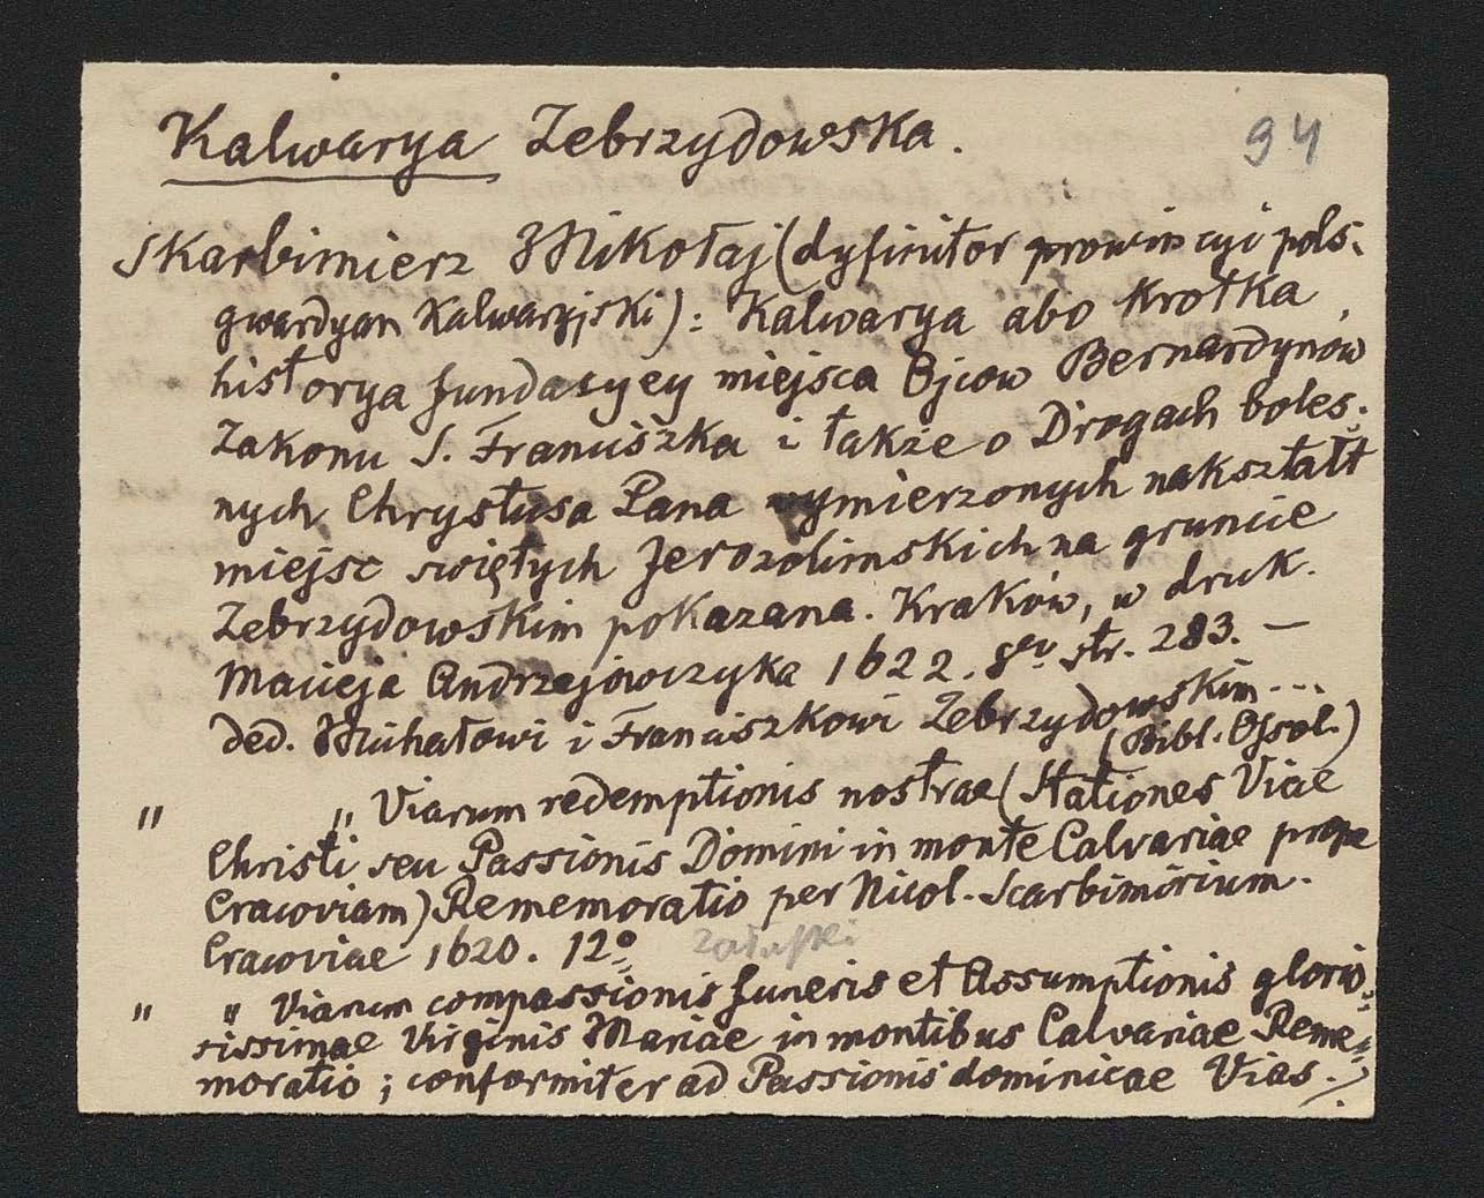 Kalwarya Zebrzydowska.
94
Skarbimierz Mikołaj (dyfinitor prowincyi pols:
gwardyan Kalwaryjski): Kalwarya abo Krotka
historya fundacyey miejsca Ojcow Bernardynów
Zakonu S. Franciszka i także o Drogach boles:
nych Chrystusa Pana wymierzonych nakształt
miejsc swiętych Jerozolimskich na gruncie
Zebrzydowskim pokazana. Kraków, w druk.
Macieja Andrzejowczyka 1622. 8ev str. 283. —
ded. Michałowi i Franciszkowi Zebrzydowskim ...
(Bibl. Ossol.)
" " Viarum redemptionis nostrae (Stationes Viae
Christi seu Passionis Domini in monte Calvariae prope
Cracoviam) Rememoratio per Nicol. Scarbimirium.
Cracoviae 1620. 12º Załuski
" " Viarum compassionis funeris et Assumptionis glorio:
sissimae Virginis Mariae in montibus Calvariae Reme:
moratio; conformiter ad Passionis dominicae Vias. ./.